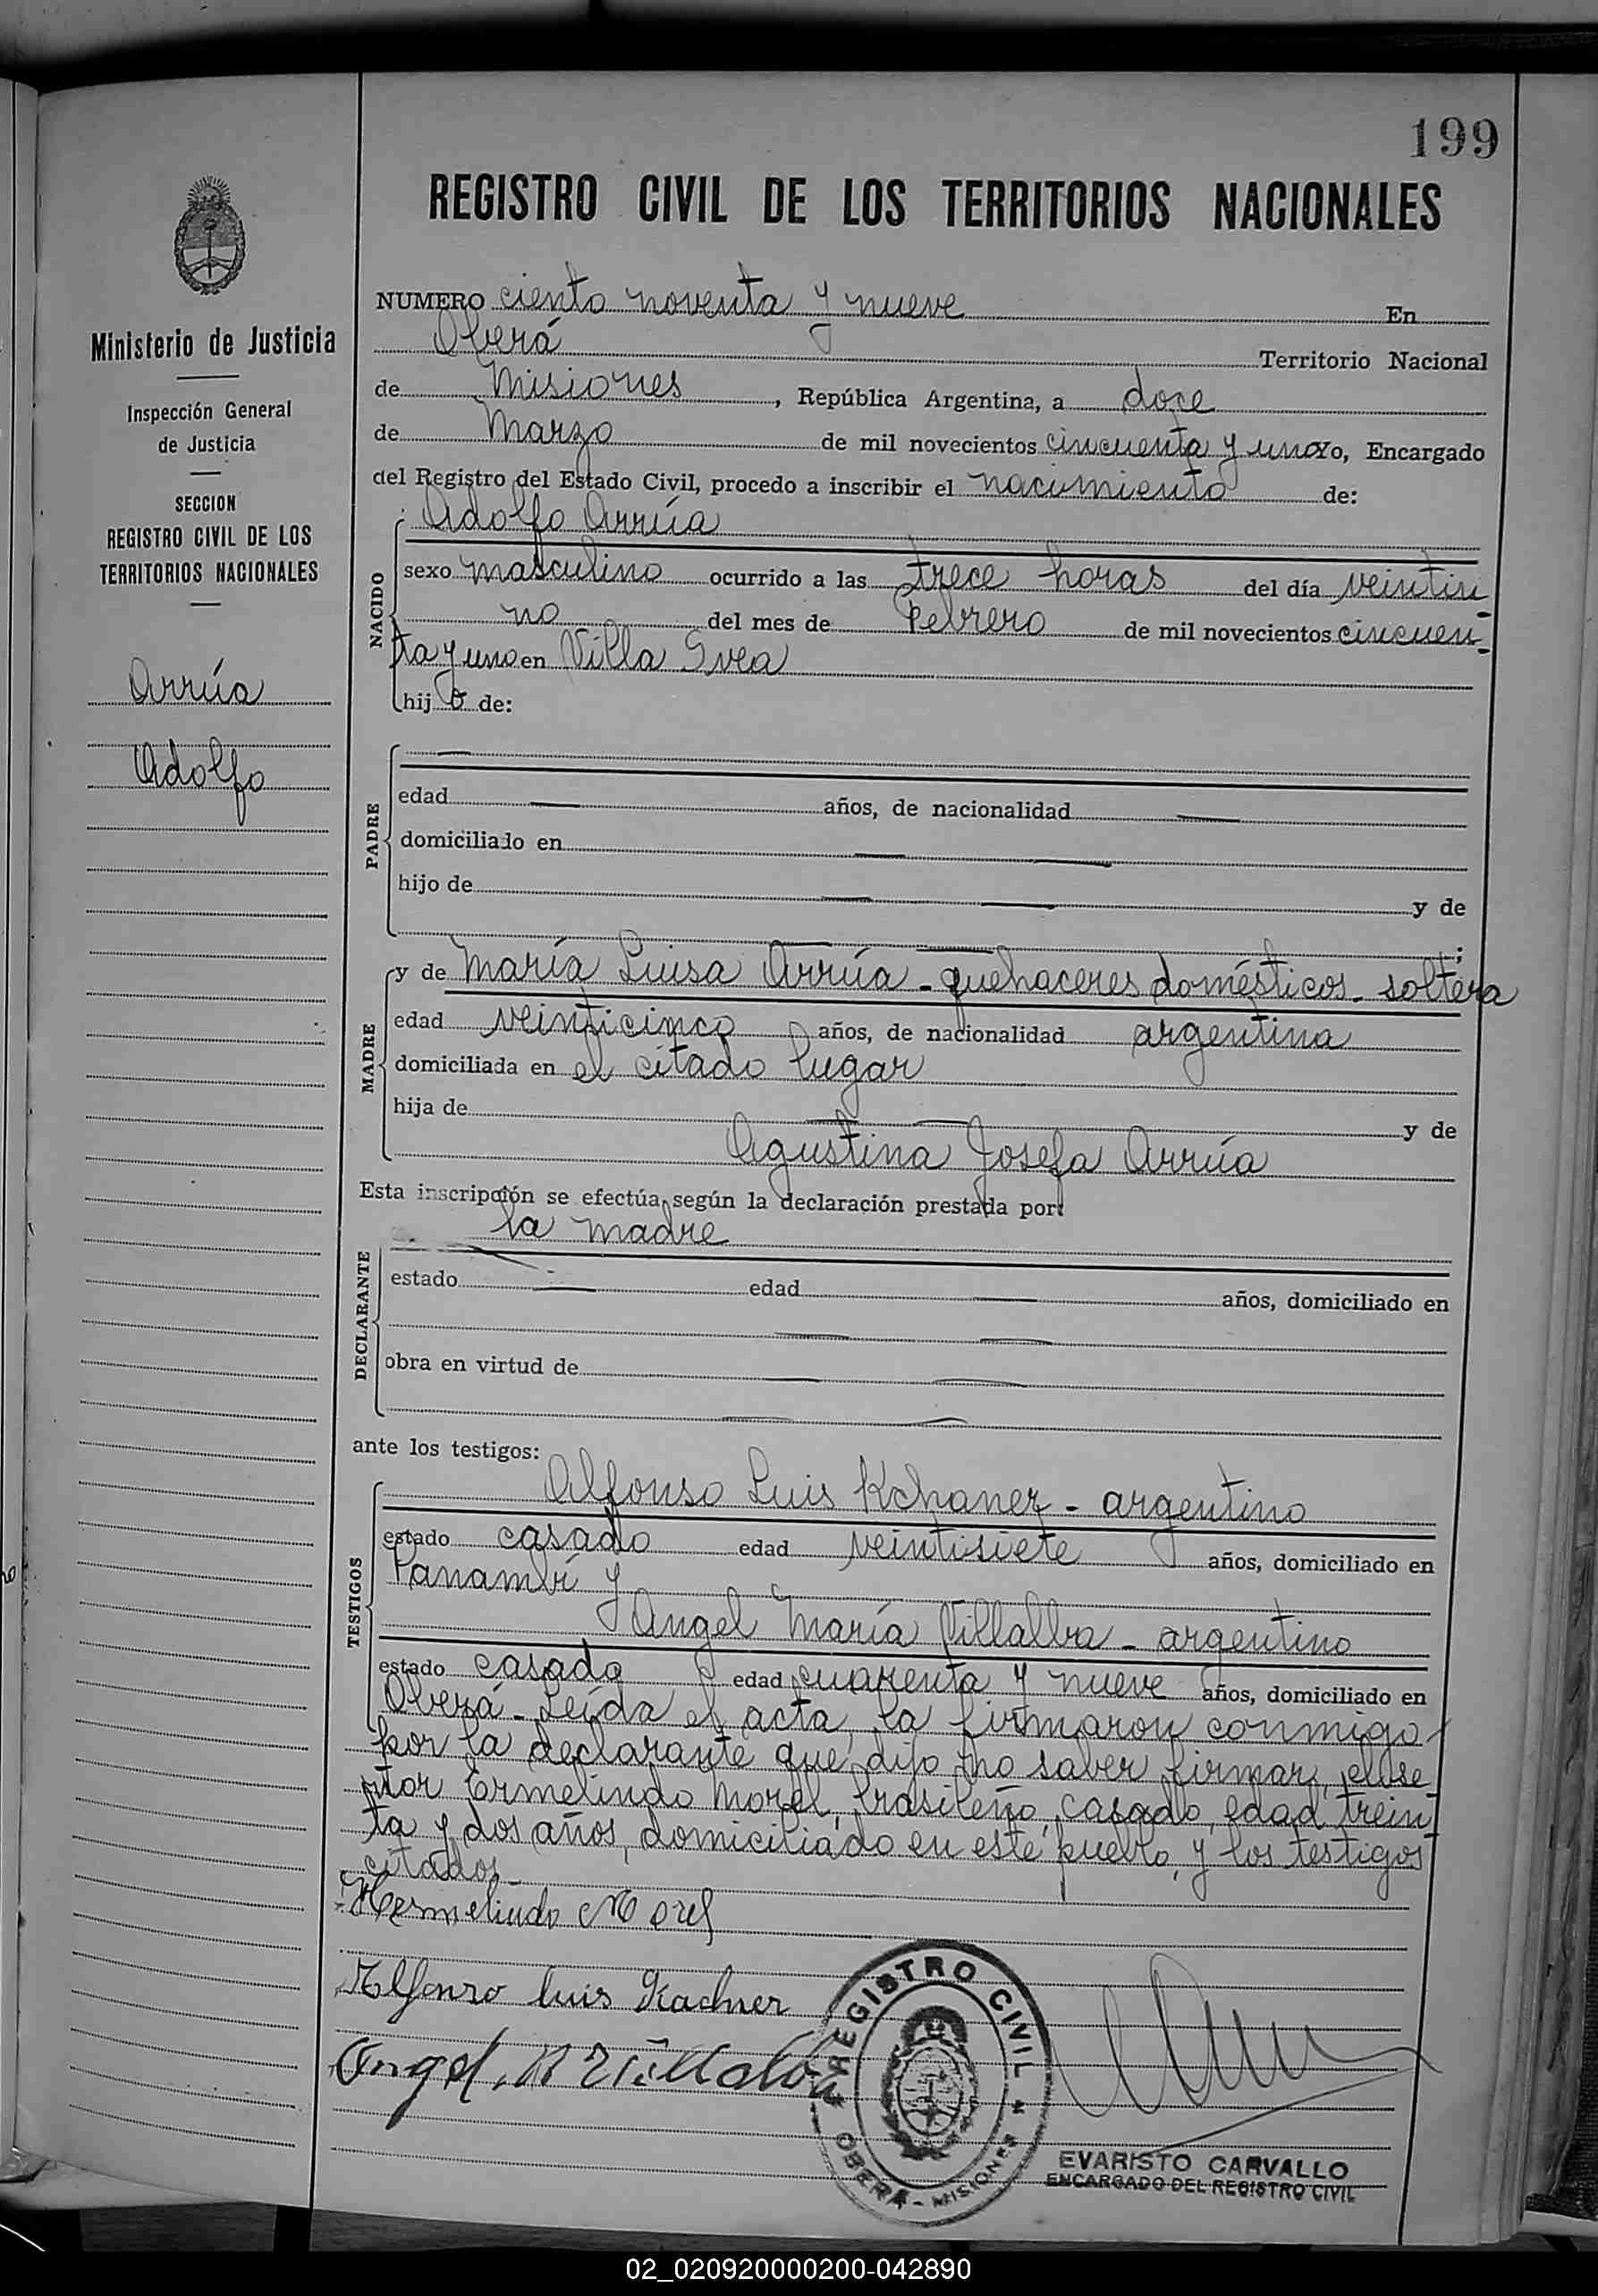 199
REGISTRO CIVIL DE LOS TERRITORIOS NACIONALES
Ministerio de Justicia
Inspección General
de Justicia
SECCION
REGISTRO CIVIL DE LOS
TERRITORIOS NACIONALES
Arrúa
Adolfo
NUMERO ciento noventa y nueve En
Oberá Territorio Nacional
de Misiones, República Argentina, a doce
de Marzo de mil novecientos cincuenta y uno Yo, Encargado
del Registro del Estado Civil, procedo a inscribir el nacimiento de:
Adolfo Arrúa
NACIDO
sexo masculino ocurrido a las trece horas del día veintiu
no del mes de Febrero de mil novecientos cincuen
ta y uno en Villa Svea
hijo de:
PADRE
edad — años, de nacionalidad —
domiciliado en — —
hijo de — — y de
— — ;
MADRE
y de María Luisa Arrúa - quehaceres domésticos - soltera
edad veinticinco años, de nacionalidad argentina
domiciliada en el citado lugar
hija de — — y de
Agustina Josefa Arrúa
Esta inscripción se efectúa según la declaración prestada por:
la madre
DECLARANTE
estado — edad — años, domiciliado en
— —
obra en virtud de — —
— —
ante los testigos:
TESTIGOS
Alfonso Luis Kchaner - argentino
estado casado edad veintisiete años, domiciliado en
Panambí y
Angel María Villalba - argentino
estado casado edad cuarenta y nueve años, domiciliado en
Oberá - Leída el acta, la firmaron conmigo
por la declarante que dijo no saber firmar, el se
ñor Ermelindo Morel, brasileño, casado, edad trein
ta y dos años, domiciliado en este pueblo, y los testigos
citados
Hermelindo Morel
Alfonso Luis Kachner
Angel. M Villalba
REGISTRO CIVIL
OBERÁ - MISIONES
EVARISTO CARVALLO
ENCARGADO DEL REGISTRO CIVIL
02_020920000200-042890